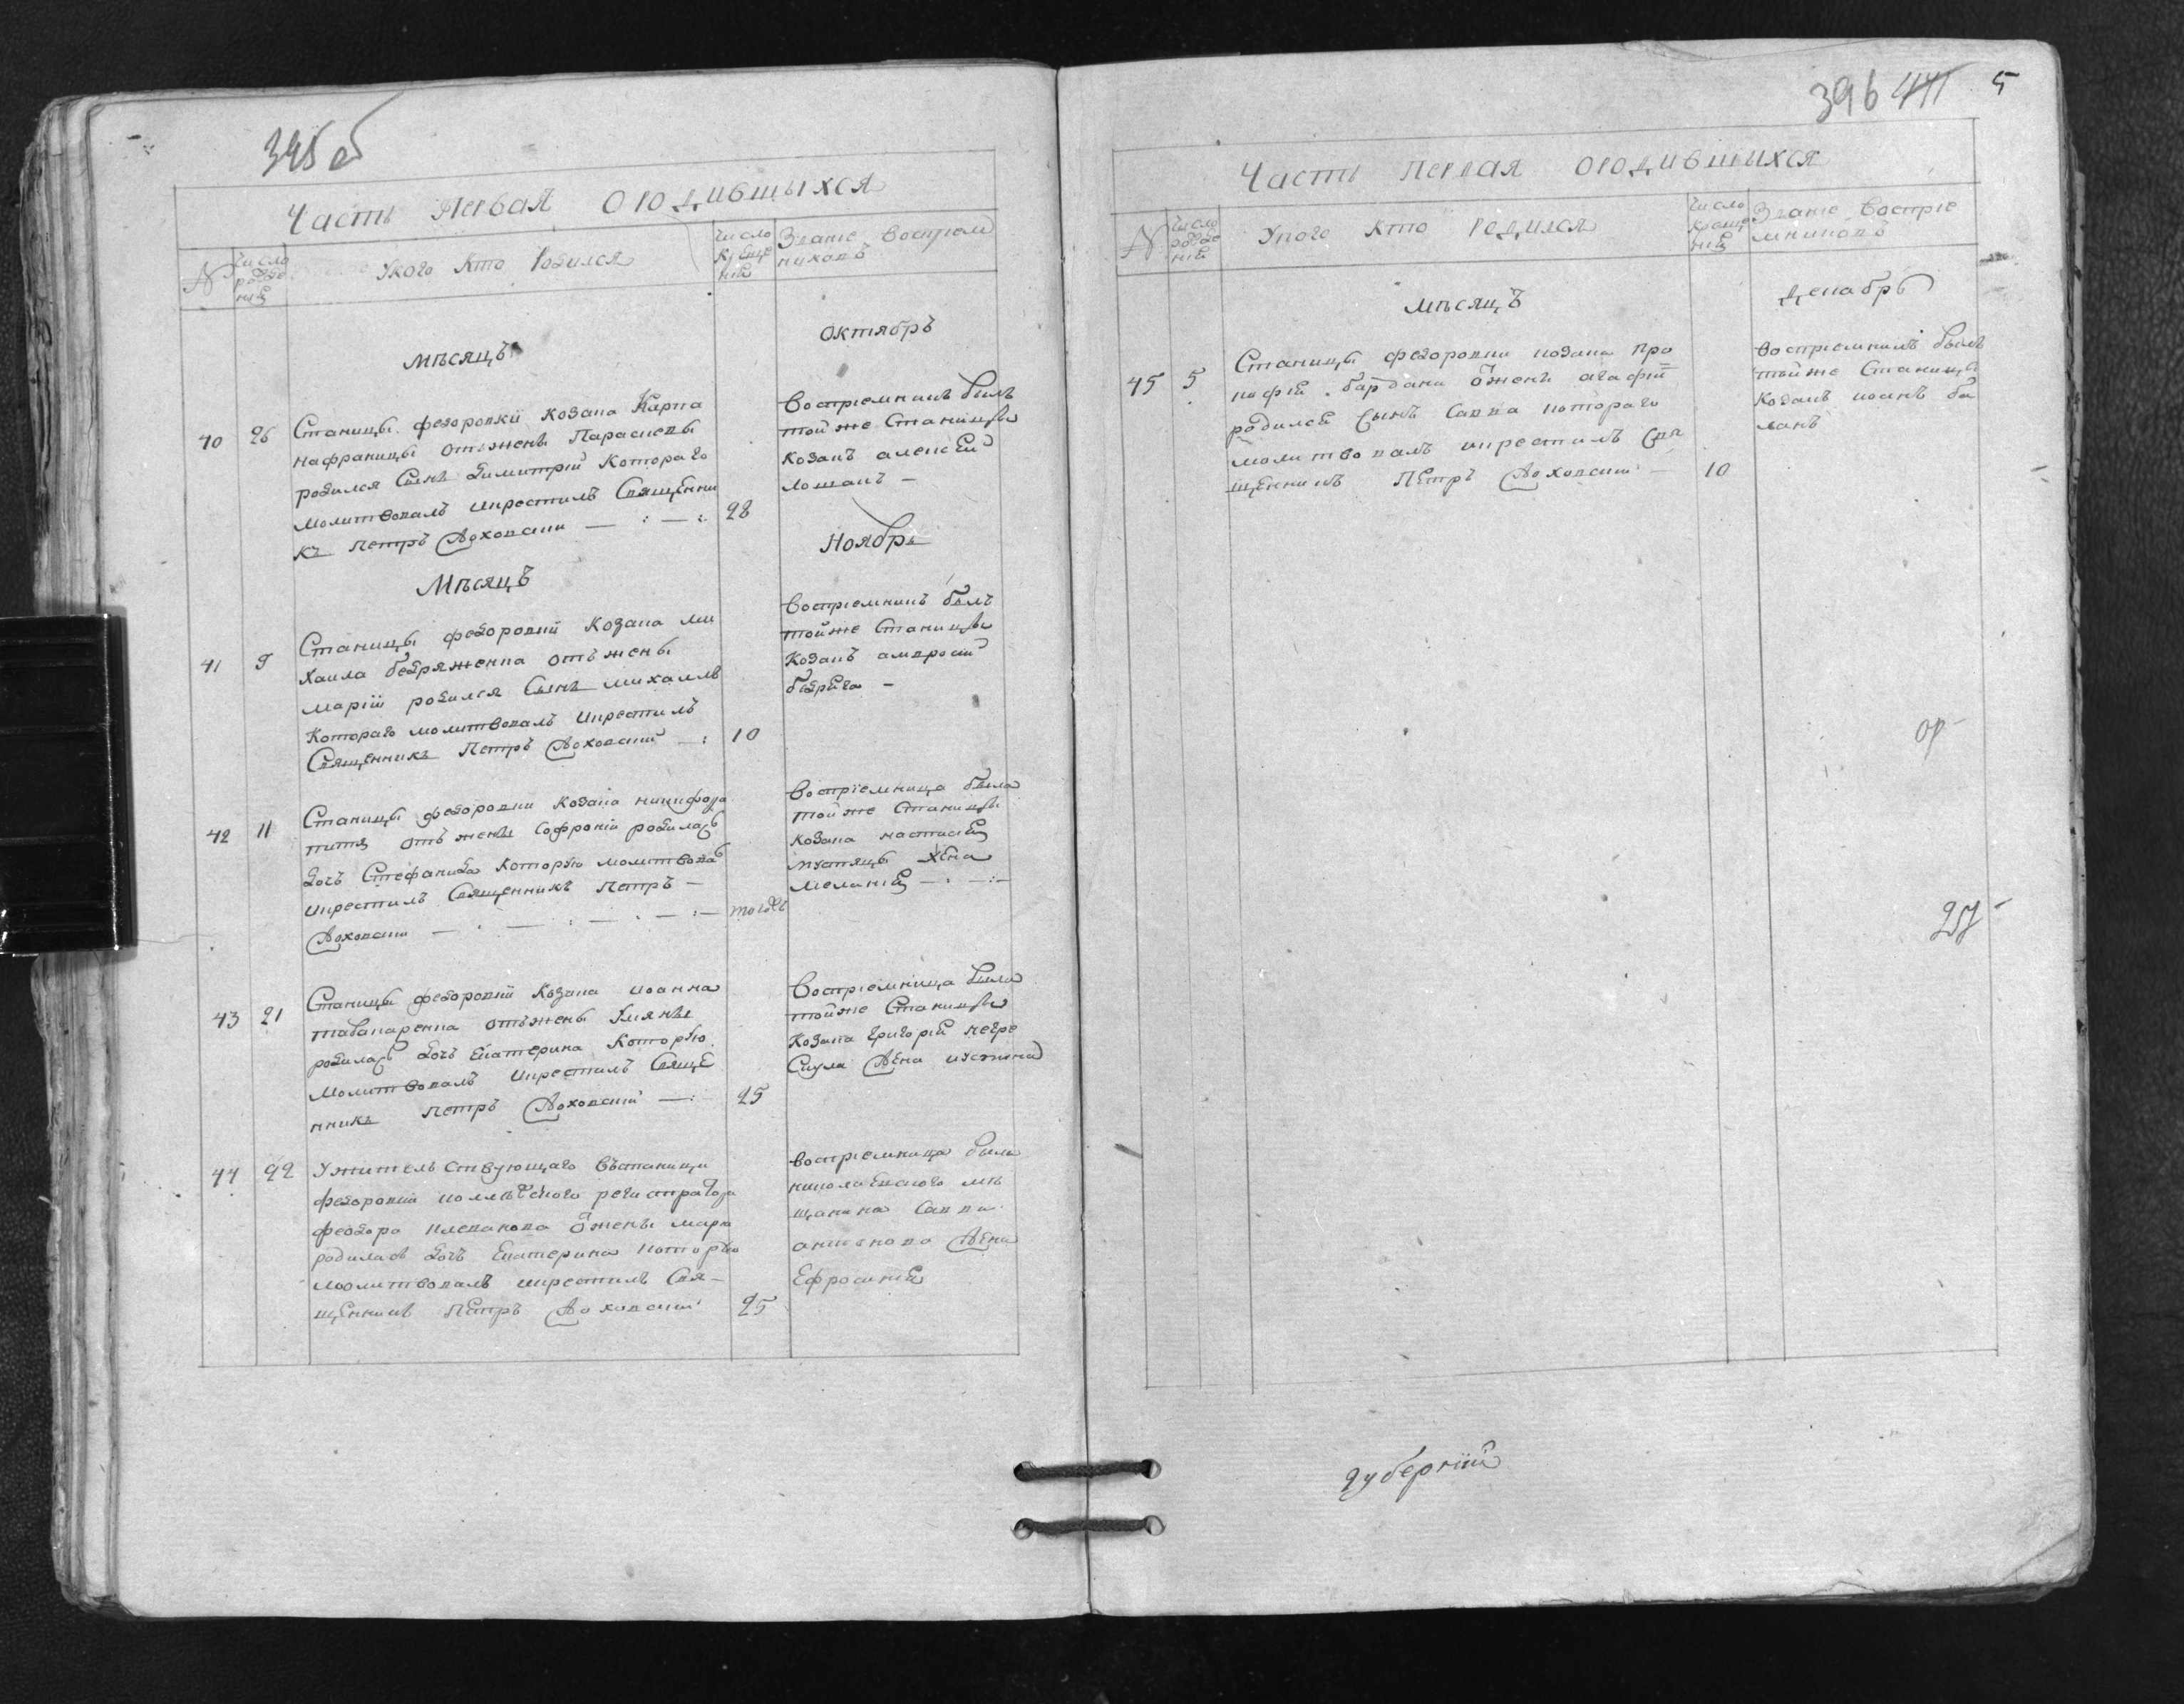 395 об
Часть Первая О родившыхся
№ Число рожде нія
У кого кто родился
Число креще нія
Званіе восприем никовъ
Мѣсяцъ
Октябрь
40 26 28
Станицы Федоровки Козака Карпа
отъ жены Параскевы
родился Сынъ Димитрій Котораго
молитвовалъ и крестилъ Священни
къ Петръ
Восприемникъ былъ
той же Станицы
Козакъ алексей
Мѣсяцъ
Ноябрь
41 9 10
Станицы Федоровки Козака ми
хаила отъ жены
маріи родился Сынъ михаилъ
Котораго молитвовалъ и крестилъ
Священникъ Петръ
Восприемникъ былъ
той же Станицы
Козакъ амвросій
42 11 тогожъ
Станицы Федоровки Козака никифора
отъ жены Софроніи родилась
дочь Стефанида Которую молитвовалъ
и крестилъ Священникъ Петръ
Восприемница была
той же Станицы
Козака
жена
Меланія
43 21 25
Станицы Федоровки Козака иоанна
отъ жены Улянѣ
родилась дочь Екатерина Которую
молитвовалъ и крестилъ Свяще
нникъ Петръ
Восприемница была
той же Станицы
Козака григорія
жена иустина
44 22 25
У жительствующаго въ станицы
Федоровки регистратора
феодора отъ жены марии
родилась дочь Екатерина которую
молитвовалъ и крестилъ Свя-
щенникъ Петръ
восприемница была
николаевского мѣ
щанина Саввы
антонова жена
Ефросинія
396 441 5
Часть Первая О родившихся
№ Число рожде нія
У кого кто родился
Число креще нія
Званіе восприе мниковъ
Мѣсяцъ
Декабрь
45 5 10
Станицы федоровки козака Про
кофія отъ жены агафіи
родился Сынъ Савва котораго
молитвовалъ и крестилъ Свя
щенникъ Петръ
восприемникъ былъ
той же Станицы
Козакъ иоанъ
губерніи